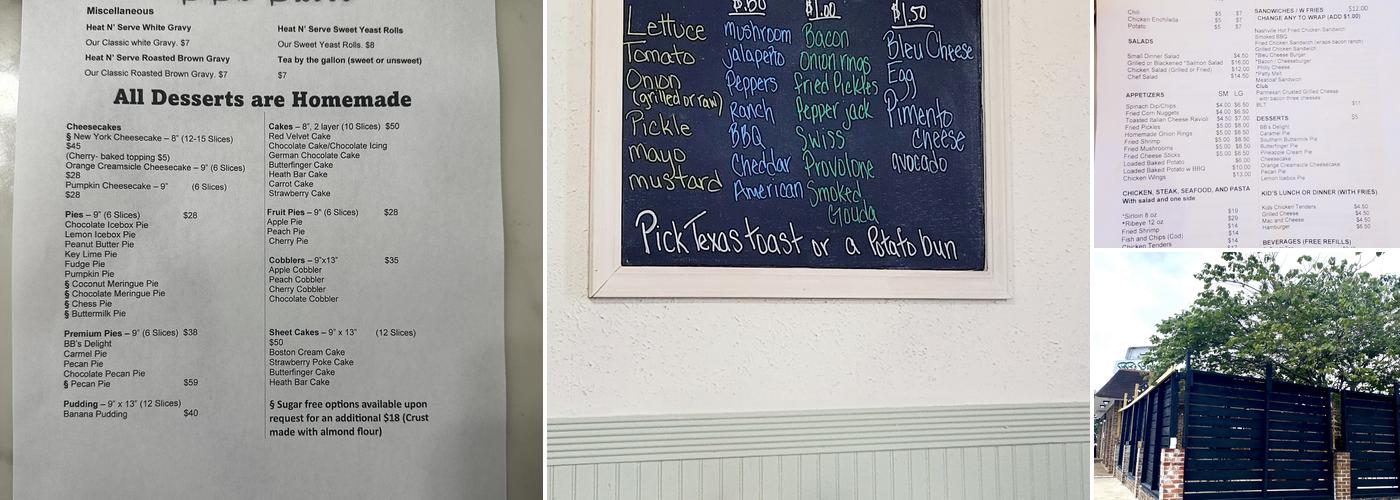 Miscellaneous
Heat N' Serve White Gravy
Our Classic white Gravy. $7
Heat N' Serve Roasted Brown Gravy
Our Classic Roasted Brown Gravy. $7
Heat N' Serve Sweet Yeast Rolls
Our Sweet Yeast Rolls. $8
Tea by the gallon (sweet or unsweet)
$7
All Desserts are Homemade
Cheesecakes
§ New York Cheesecake – 8" (12-15 Slices)
$45
(Cherry- baked topping $5)
Orange Creamsicle Cheesecake – 9" (6 Slices)
$28
Pumpkin Cheesecake – 9" (6 Slices)
$28
Pies – 9" (6 Slices) $28
Chocolate Icebox Pie
Lemon Icebox Pie
Peanut Butter Pie
Key Lime Pie
Fudge Pie
Pumpkin Pie
§ Coconut Meringue Pie
§ Chocolate Meringue Pie
§ Chess Pie
§ Buttermilk Pie
Premium Pies – 9" (6 Slices) $38
BB's Delight
Carmel Pie
Pecan Pie
Chocolate Pecan Pie
§ Pecan Pie $59
Pudding – 9" x 13" (12 Slices)
Banana Pudding $40
Cakes – 8", 2 layer (10 Slices) $50
Red Velvet Cake
Chocolate Cake/Chocolate Icing
German Chocolate Cake
Butterfinger Cake
Heath Bar Cake
Carrot Cake
Strawberry Cake
Fruit Pies – 9" (6 Slices) $28
Apple Pie
Peach Pie
Cherry Pie
Cobblers – 9"x13" $35
Apple Cobbler
Peach Cobbler
Cherry Cobbler
Chocolate Cobbler
Sheet Cakes – 9" x 13" (12 Slices)
$50
Boston Cream Cake
Strawberry Poke Cake
Butterfinger Cake
Heath Bar Cake
§ Sugar free options available upon
request for an additional $18 (Crust
made with almond flour)
Lettuce
Tomato
Onion
(grilled or raw)
Pickle
Mayo
mustard
$.50
mushroom
jalapeño
Peppers
Ranch
BBQ
Cheddar
American
$1.00
Bacon
Onion rings
Fried Pickles
Pepper jack
Swiss
Provolone
Smoked
Gouda
$1.50
Bleu Cheese
Egg
Pimento
Cheese
avocado
Pick Texas toast or a Potato bun
Chili $5 $7
Chicken Enchilada $5 $7
Potato $5 $7
SALADS
Small Dinner Salad $4.50
Grilled or Blackened *Salmon Salad $16.00
Chicken Salad (Grilled or Fried) $12.00
Chef Salad $14.50
APPETIZERS SM LG
Spinach Dip/Chips $4.00 $6.50
Fried Corn Nuggets $4.00 $6.50
Toasted Italian Cheese Ravioli $4.50 $7.00
Fried Pickles $5.00 $8.00
Homemade Onion Rings $5.00 $8.50
Fried Shrimp $5.00 $8.50
Fried Mushrooms $5.00 $8.50
Fried Cheese Sticks $5.00 $8.50
Loaded Baked Potato $6.00
Loaded Baked Potato w BBQ $10.00
Chicken Wings $13.00
CHICKEN, STEAK, SEAFOOD, AND PASTA
With salad and one side
*Sirloin 8 oz $19
*Ribeye 12 oz $29
Fried Shrimp $14
Fish and Chips (Cod) $14
Chicken Tenders
SANDWICHES / W FRIES $12.00
CHANGE ANY TO WRAP (ADD $1.00)
Nashville Hot Fried Chicken Sandwich
Smoked BBQ
Fried Chicken Sandwich (wraps bacon ranch)
Grilled Chicken Sandwich
*Bleu Cheese Burger
*Bacon / Cheeseburger
Philly Cheese
*Patty Melt
Meatloaf Sandwich
Club
Parmesan Crusted Grilled Cheese
with bacon three cheeses
BLT $11
DESSERTS $5
BB's Delight
Caramel Pie
Southern Buttermilk Pie
Butterfinger Pie
Pineapple Cream Pie
Cheesecake
Orange Creamsicle Cheesecake
Pecan Pie
Lemon Icebox Pie
KID'S LUNCH OR DINNER (WITH FRIES)
Kids Chicken Tenders $4.50
Grilled Cheese $4.50
Mac and Cheese $4.50
Hamburger $6.50
BEVERAGES (FREE REFILLS)